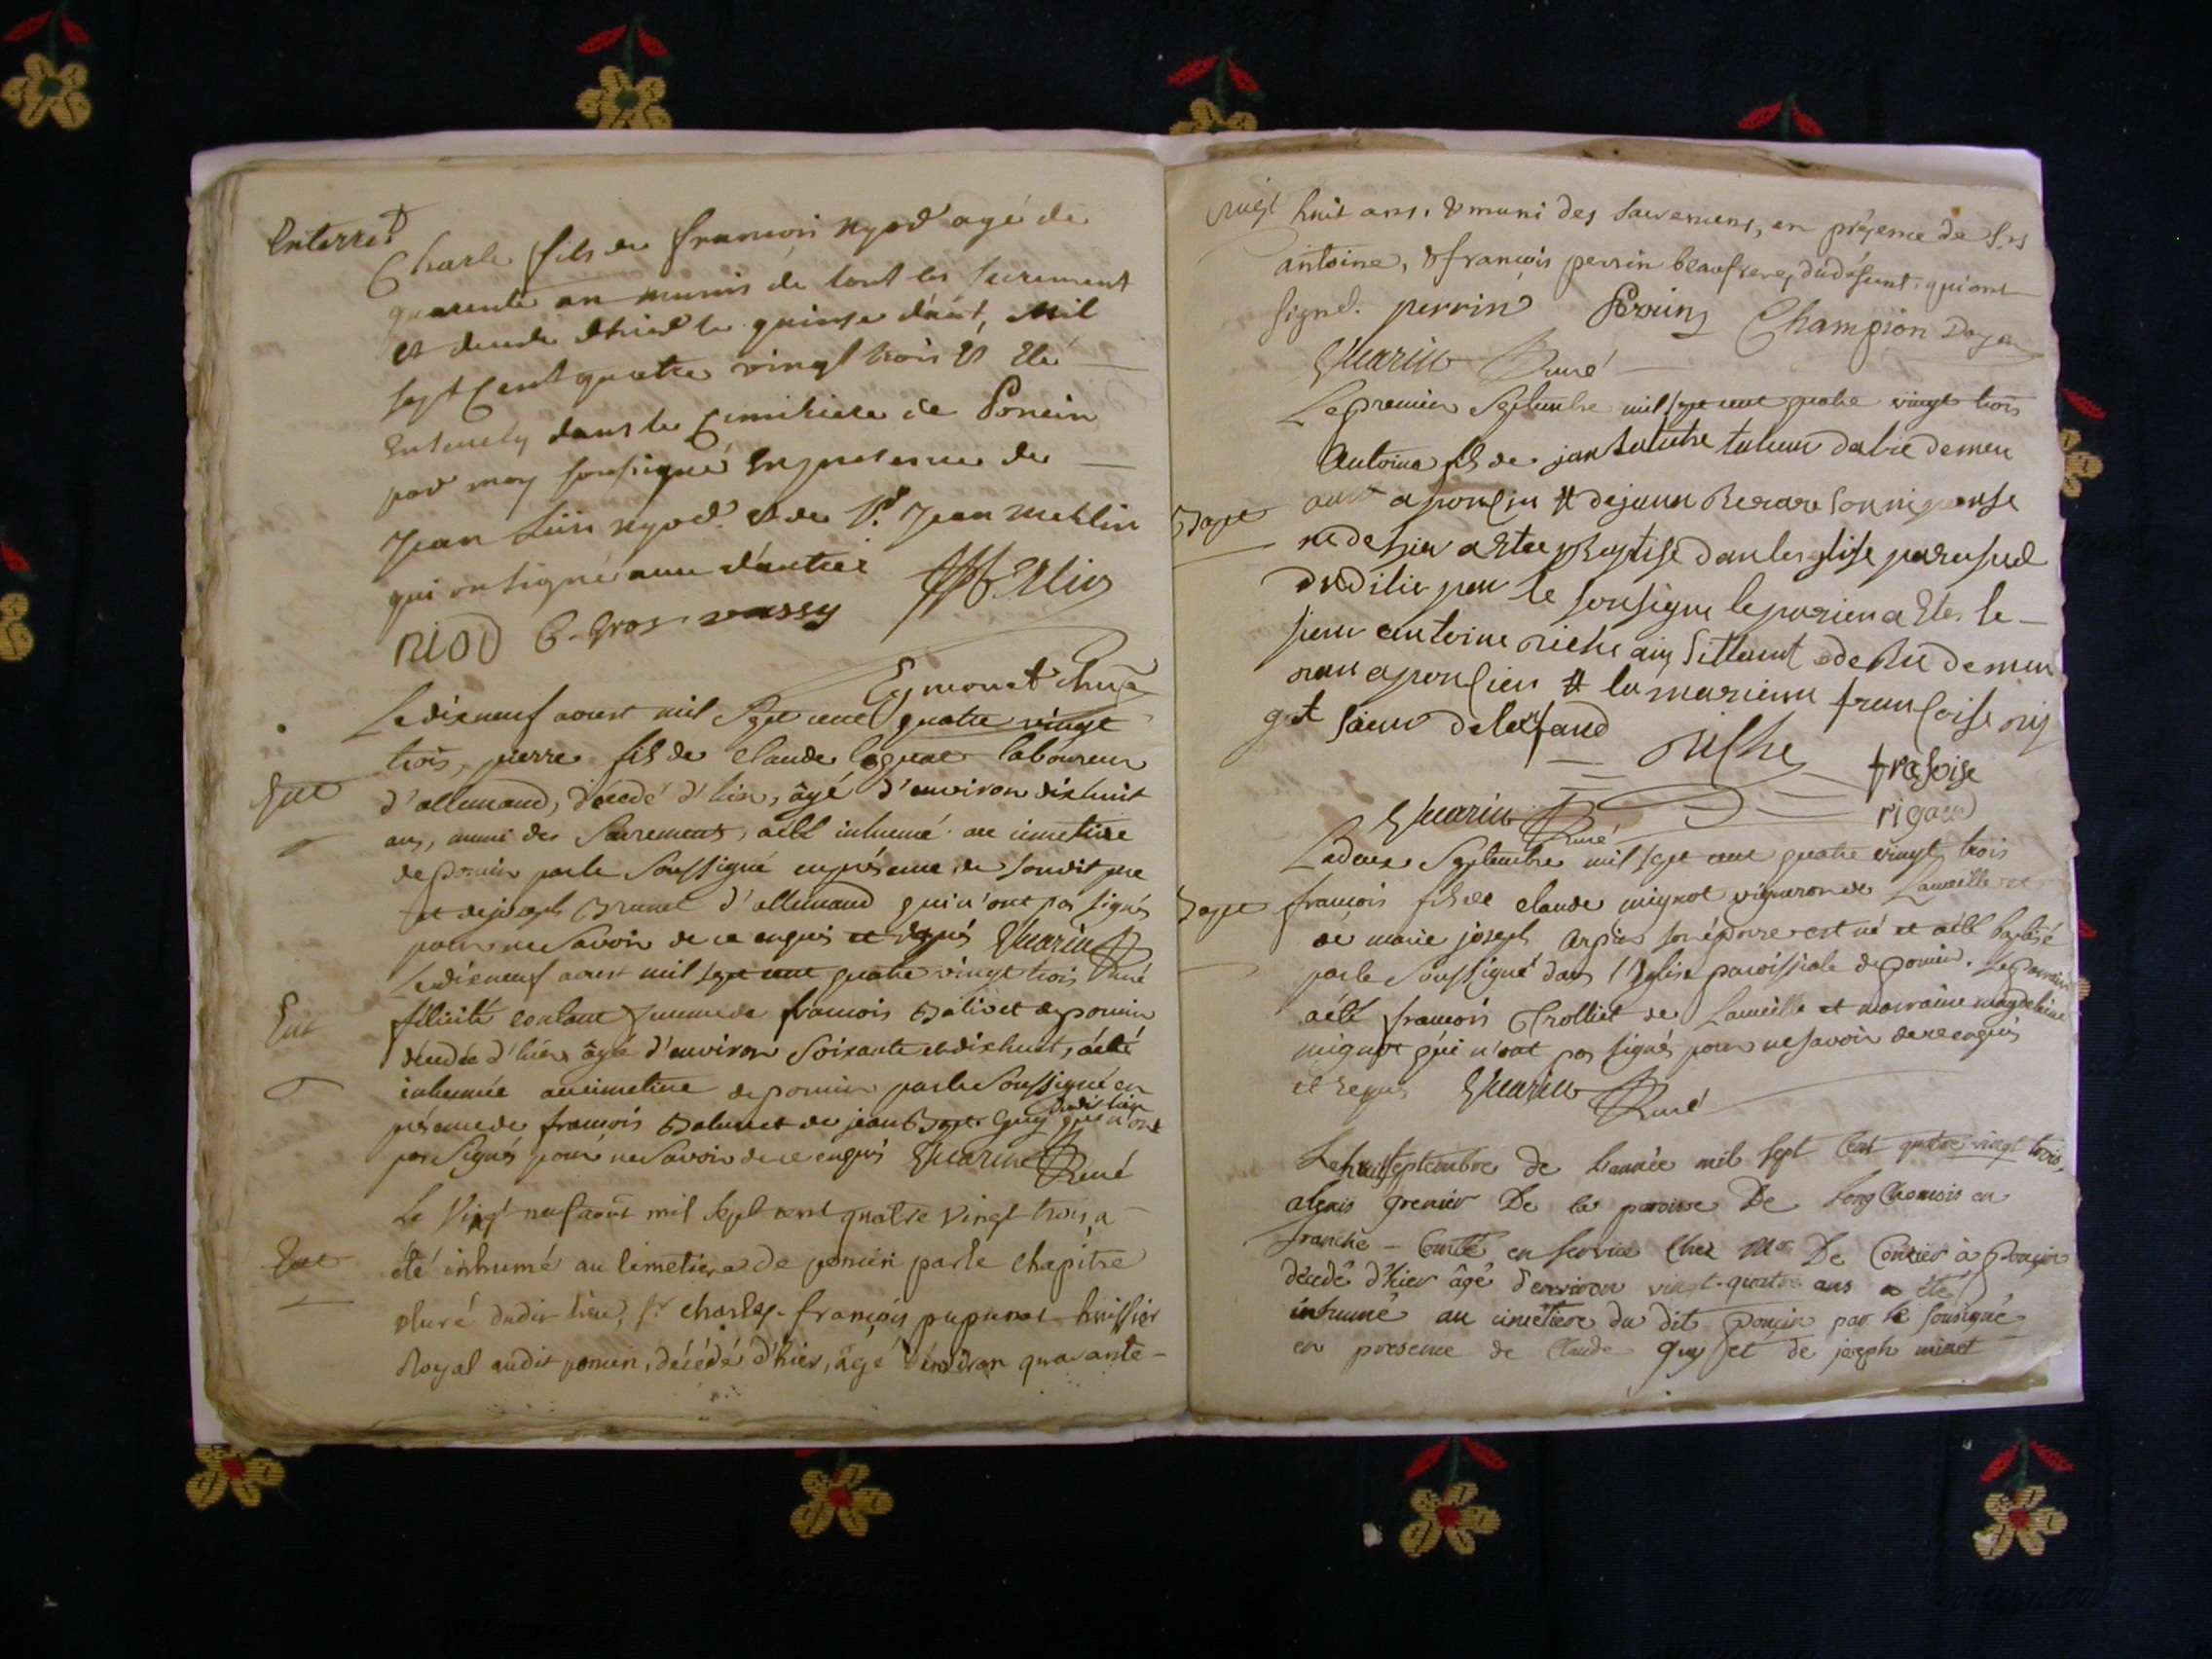 Enterre
Charle fils de francois nyod agé de
quarente an munis de tout les sacrement
et decede dhier le quinse d'aut, Mil
sept Cent quatre vingt trois et Eté
dans le Cimitiere de Poncin
par moy sousigné en presence de
Jean nyod et de Sr. Jean Merlin
qui on signé avec d'autre
niod C. Gros vassy Merlin
Eymonet
Ledixneuf aoust mil sept cent quatre vingt
trois, pierre fils de claude laboureur
d'allemand, décedé d'hier, âgé d'environ dixhuit
ans, muni des Sacrements, a été inhumé au cimetiere
de poncin par le Soussigné en présence de sondit pere
et de joseph Brunet d'allemand qui n'ont pas signés
pour ne Savoir de ce enquis et requis Guarin
Ent
Ledixneuf aoust mil sept cent quatre vingt trois Curé
Ent
félicité femme de francois de poncin
décedée d'hier âgée d'environ Soixante et dixhuit, a été
inhumée au cimetiere de poncin par le Soussigné en
présence de francois et de jean Bapt Guy dudit lieu qui n'ont
pas Signés pour ne Savoir de ce enquis Guarin Curé
Le Vingt neuf août mil sept cent quatre vingt trois, a
Ent
été inhumé au cimetiere de poncin par le chapitre
& curé dudit lieu, sr charles-françois pupunat huissier
Royal audit poncin, décédé d'hier, âgé d'environ quarante-
vingt huit ans, & muni des sacremens, en présence de srs
antoine, & françois perrin beaufreres dudéfunt, qui ont
signé. perrin Perrin Champion Doyen
Guarin Curé
Le premier Septembre mil sept cent quatre vingt trois
Antoine fils de jan demeu
a poncin de
Bapt
ne de hier a Etee Baptise dans leglise
dudilieu par le sousigne le parien a Ete le
sieur antoine riche
a poncien la marienne francoise
riche
frasoise
rigaud
Guarin Curé
Le deux Septembre mil sept cent quatre vingt trois
Bapt
francois fils de claude mignot vigneron de et
de marie joseph son épouse est né et a été baptisé
par le Soussigné dans l'Eglise paroissiale de poncin. Le parrain
a été francois Trolliet de et marraine magdelaine
mignot qui n'ont pas signés pour ne savoir de ce enquis
et requis Guarin Curé
Le huit Septembre de l'année mil sept Cent quatre vingt trois,
alexis grenier De la paroisse De long Chaumois en
franche-Comté en service Chez Mr De Conzier à Poncin
décedé d'hier âgé d'environ vingt-quatre ans a été
inhumé au cimetiere du dit poncin par le sousigné
en presence de Claude Guy et de joseph minet